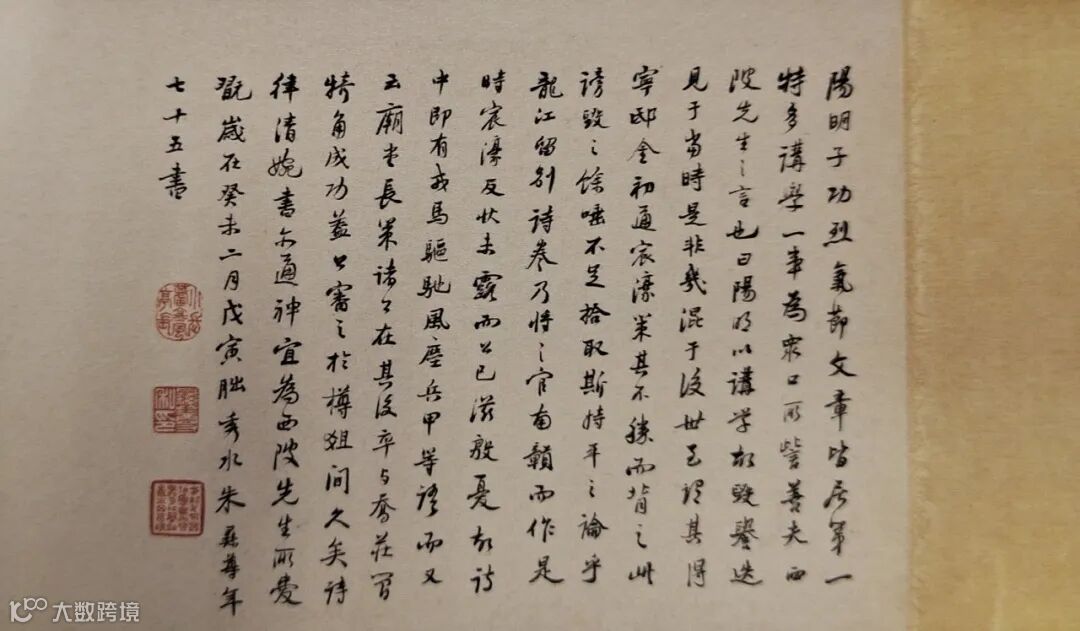 陽明子功烈氣節文章皆居第一
特多講學一事為眾口所訾善夫西
陂先生之言也曰陽明以講學故毀譽迭
見于當時是非幾混于後世至謂其得
寧邸金初通宸濠策其不勝而背之此
謗毀之餘唾不足拾取斯持平之論乎
龍江留別詩卷乃將之官南贛而作是
時宸濠反狀未露而公已滋殷憂故詩
中即有戎馬驅馳風塵兵甲等語而又
云廟堂長策諸公在其後卒與喬莊簡
犄角成功蓋公審之於樽俎間久矣詩
律清婉書亦通神宜為西陂先生所愛
翫歲在癸未二月戊寅朏秀水朱彝尊年
七十五書
大数跨境